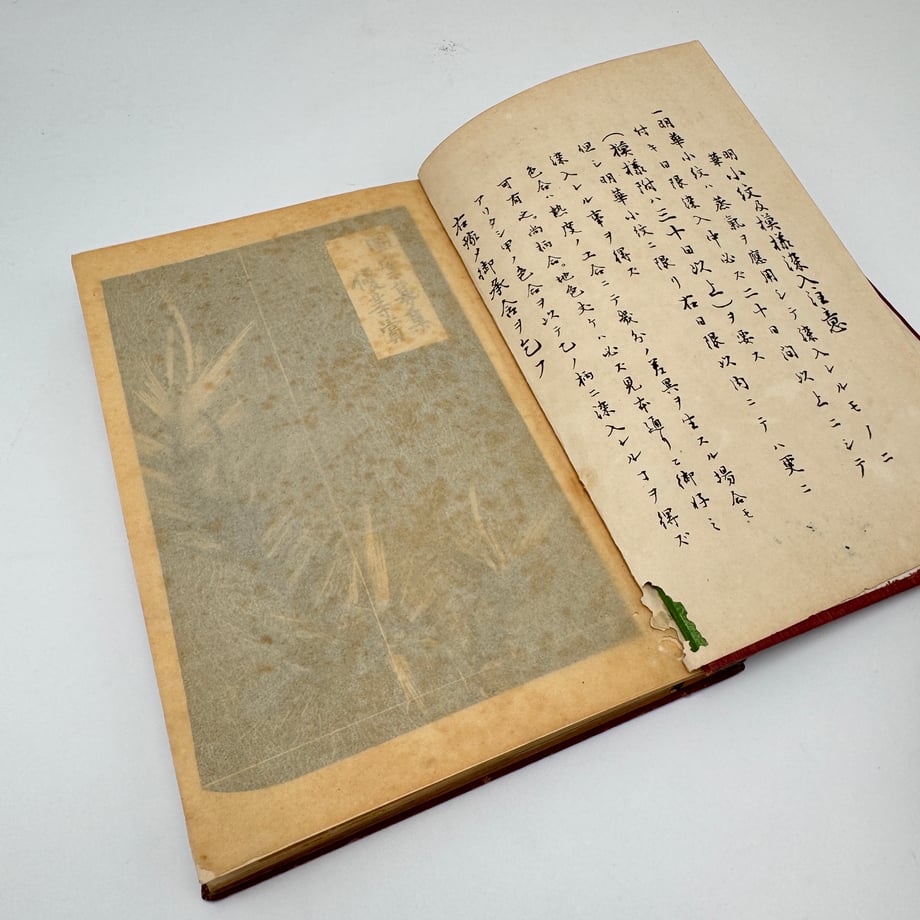 明華小紋及模様染入注意
一明華小紋ハ蒸氣ヲ應用シテ染入レルモノニ
付キ日限染入中必ス二十日間以上ニシテ
(模様附ハ三十日以上)ヲ要ス
但シ明華小紋ニ限リ右日限以内ニテハ更ニ
染入レル事ヲ得ズ
色合ハ熱度ノ工合ニテ幾分ノ差異ヲ生スル場合モ
可有之尚柄合、地色丈ケハ必ス見本通リニ御好ミ
アリタシ甲ノ色合ヲ以テ乙ノ柄ニ染入レルヿヲ得ズ
右豫メ御承含ヲ乞フ